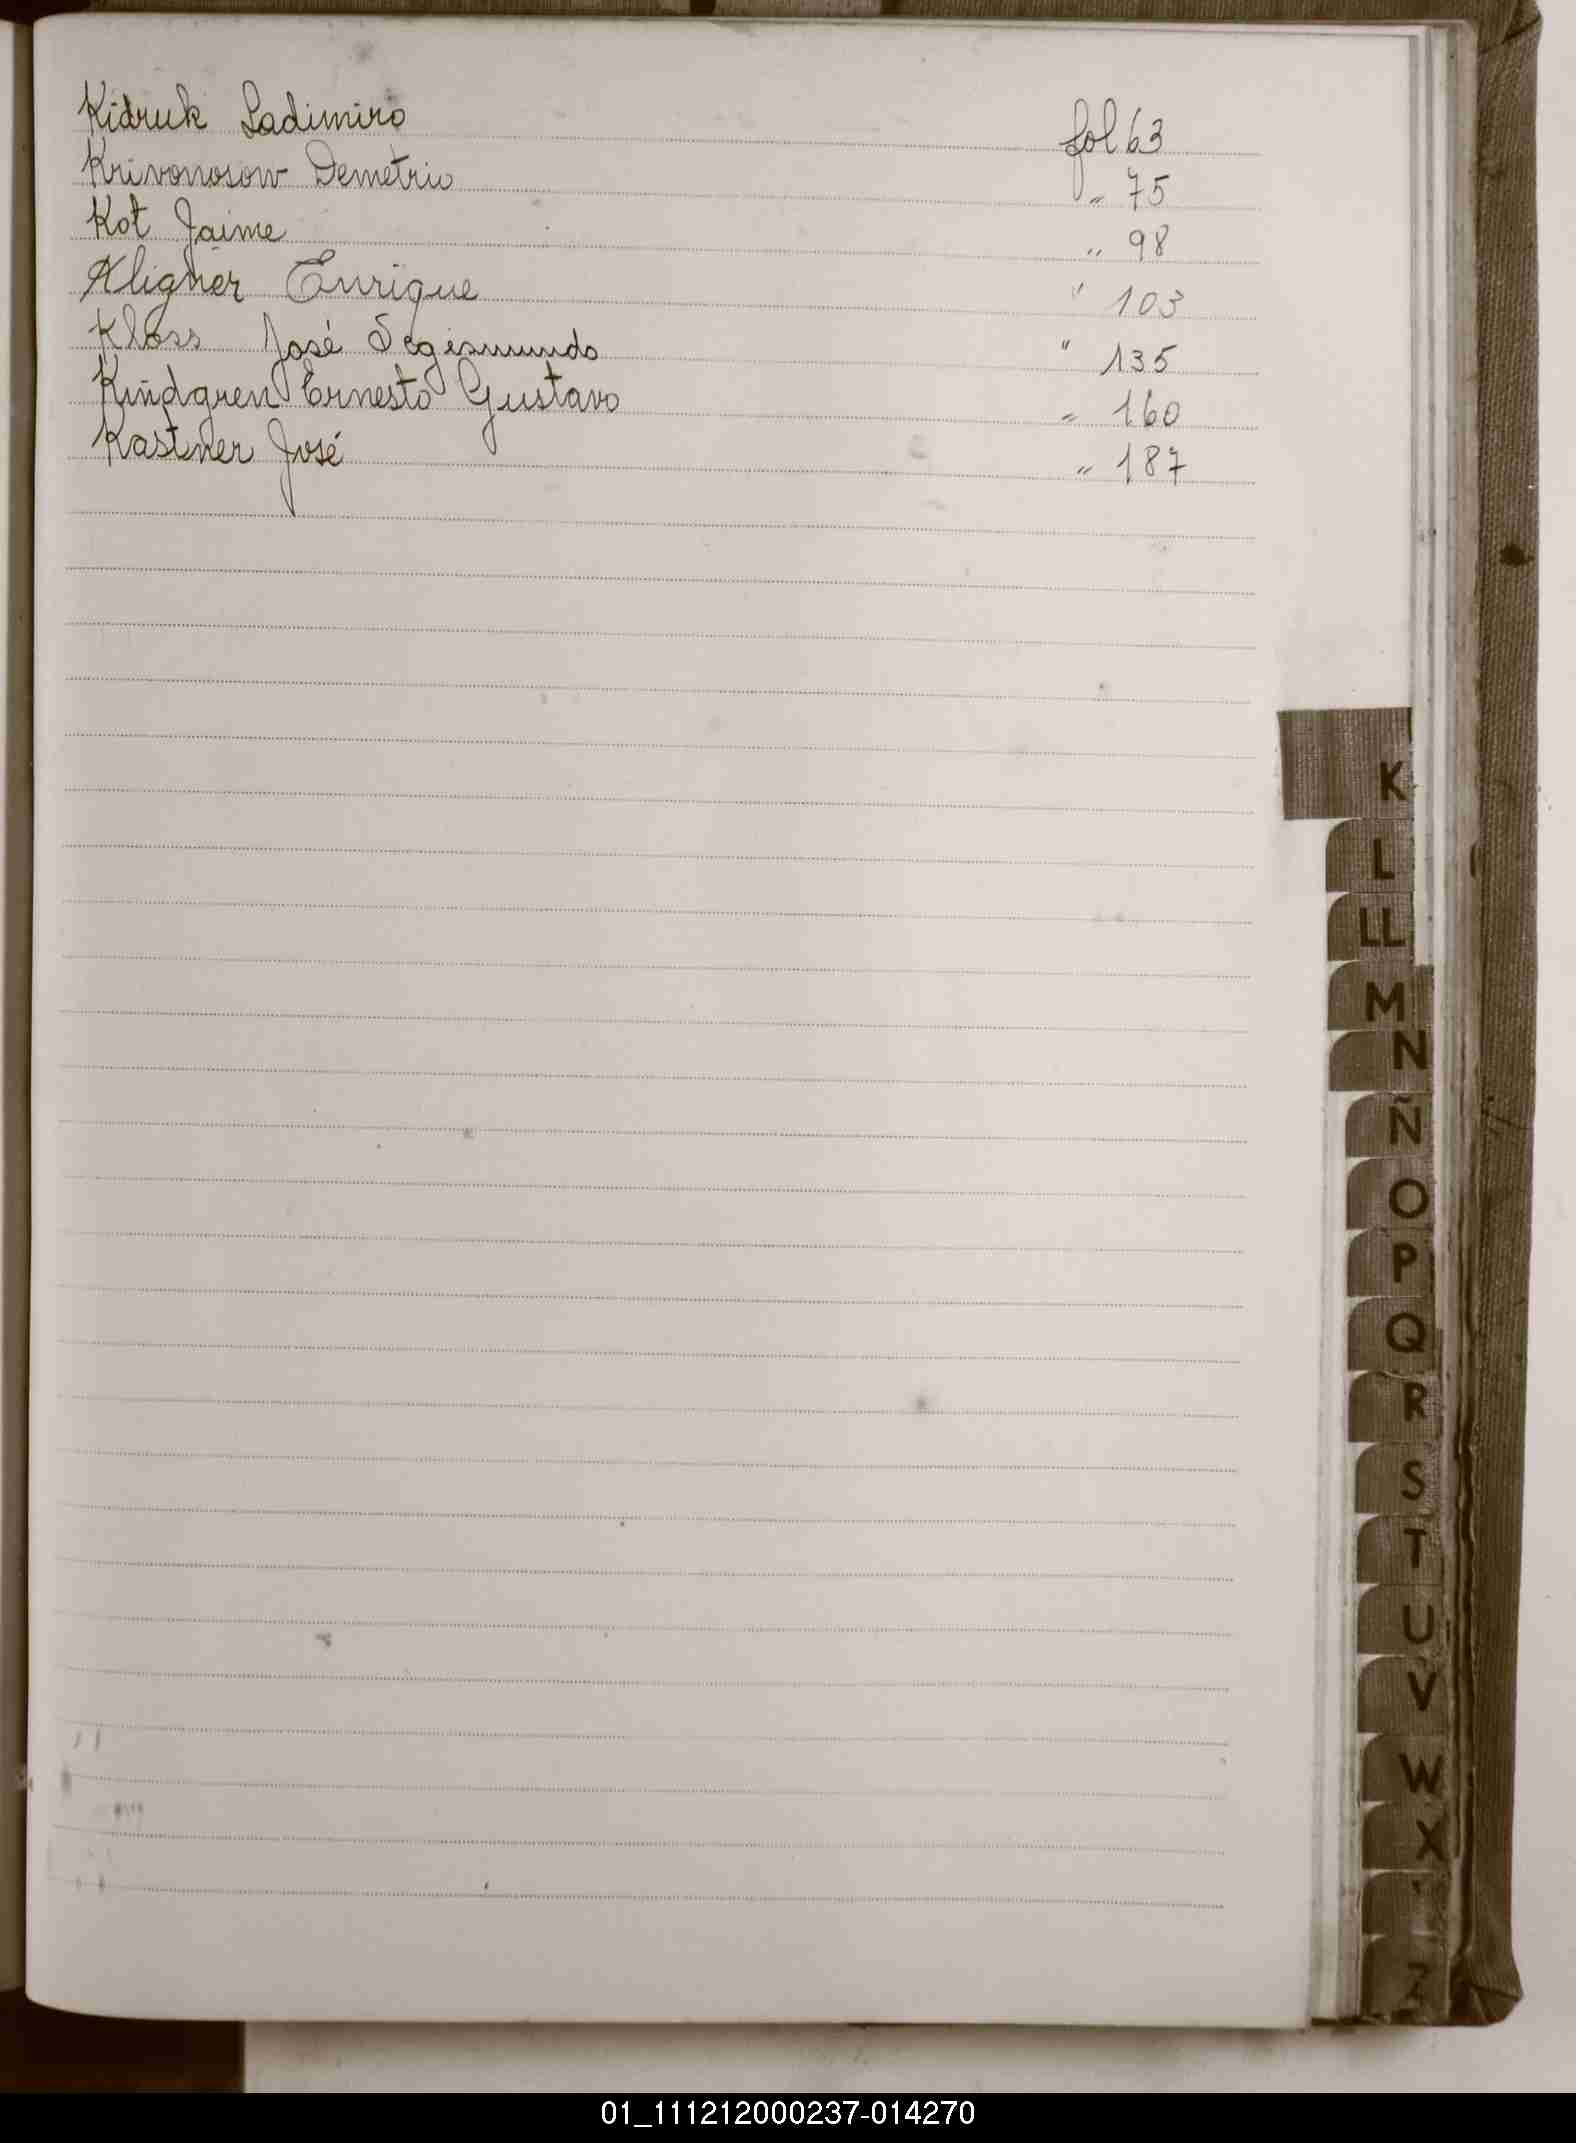 Kidruk Ladimiro fol 63
Krivonosow Demetrio " 75
Kot Jaime " 98
Kligner Enrique " 103
Kloss José Segismundo " 135
Kindgren Ernesto Gustavo " 160
Kastner José " 187
K
L
LL
M
N
Ñ
O
P
Q
R
S
T
U
V
W
X
Z
01_111212000237-014270